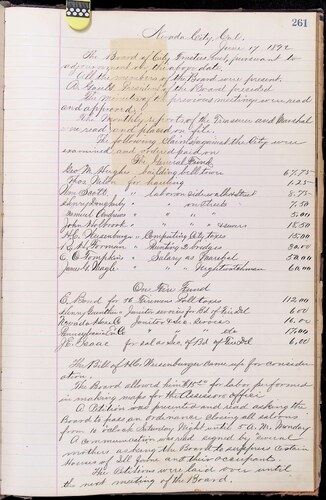 261
Nevada City, Cal.
June 17 1892
The Board of City Trustees met pursuant to
adjournment on the above date.
All the members of the Board were present.
President of the Board presided
The minutes of previous meetings were read
and approved.
The Monthly reports of the Treasurer and Marshal
were read and placed on file.
The following claims against the City were
examined and ordered paid on
The General Fund
Geo. M. Hughes building bell tower 67.75
for hauling 1.25
labor on sidewalk & street 3.75
Henry Dougherty " " streets 7.50
Samuel Andrews " " " 5.00
John Holbrook " " " & sewers 15.50
Computing City Taxes 15.00
Thorman 2 bridges 30.00
Tompkins Salary as Marshal 50.00
James G. Nagle " " Nightwatchman 60.00
On Fire Fund
Bond for 56 Firemen poll taxes 112.00
Henry services for Bd. of Fire Del 6.00
Nevada Hose Co Janitor & Gas 16.00
Pennsylvania Co " " " do 17.00
J. E. Isaac for sal as Sec. of Bd. of Fire Del 6.00
The Bill of came up for consid-
eration.
The Board allowed him for labor performed
in making maps for the Assessors office
A Petition was presented and read asking the
Board to pass an Ordinance closing all saloons
from 12 o'clock Saturday Night until 5 A.M. Monday
A communication was read signed by several
mothers asking the Board to suppress certain
Homes of Ill fame and their occupants.
The Petitions were laid over until
the next meeting of the Board.